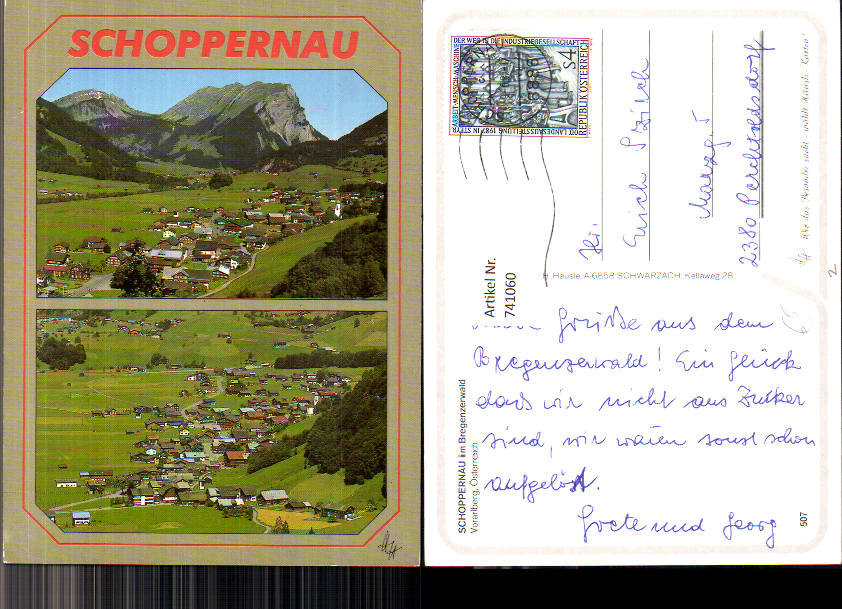 SCHOPPERNAU
DER WEG IN DIE INDUSTRIEGESELLSCHAFT
ARBEIT·MENSCH·MASCHINE
OÖ. LANDESAUSSTELLUNG 1987 IN STEYR
S4
REPUBLIK ÖSTERREICH
Erich
2380 Perchtoldsdorf
H. Häusle, A-6858 SCHWARZACH, Kellaweg 28
Artikel Nr.
741060
Grüße aus dem
Bregenzerwald! Ein Glück
dass wir nicht aus Zucker
sind, wir wären sonst schon
aufgelöst.
Grete und Georg
SCHOPPERNAU im Bregenzerwald
Vorarlberg, Österreich
507
Wer das Besondre sucht - wählt Häusle-Karten!
2